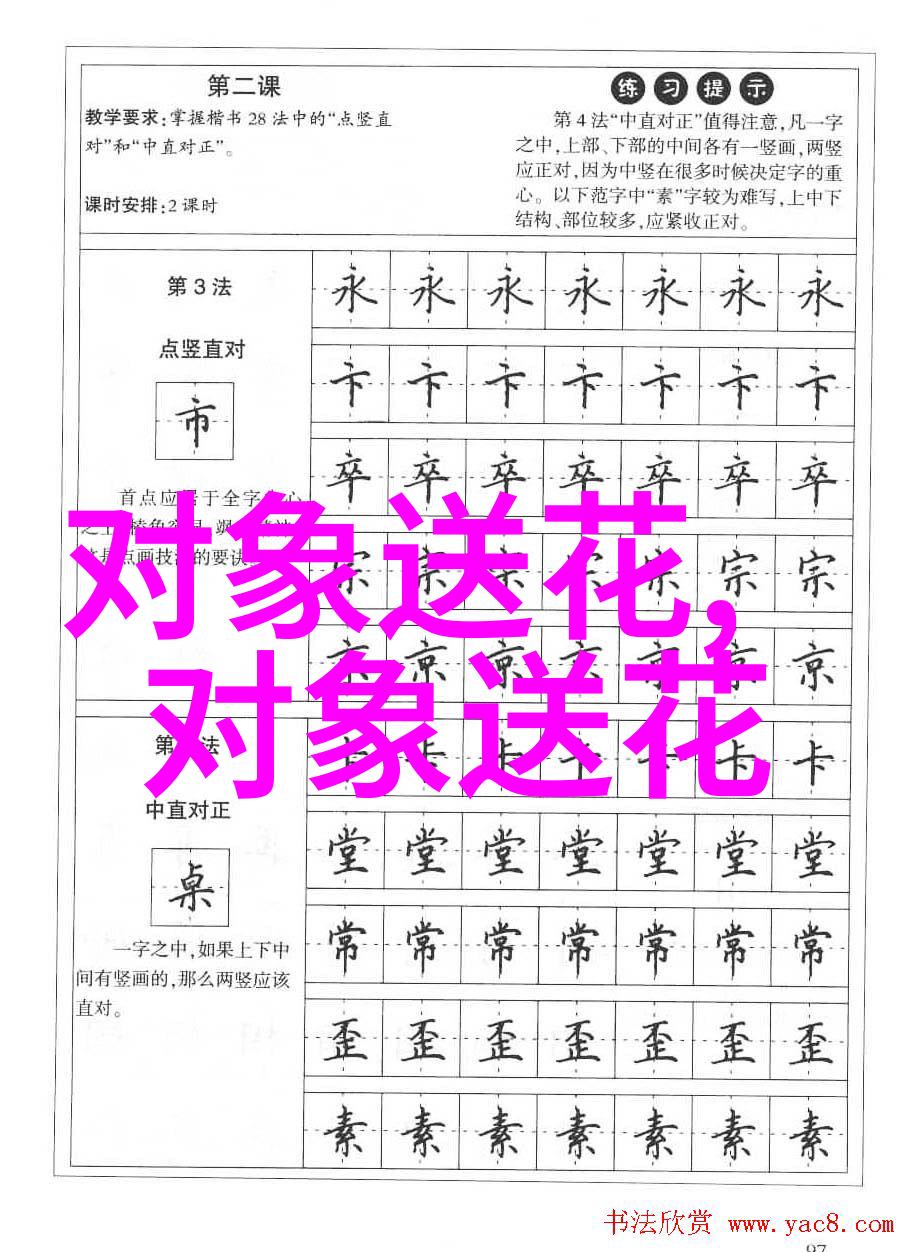 第二课
教学要求:掌握楷书28法中的“点竖直
对”和“中直对正”。
课时安排:2课时
练习提示
第4法“中直对正”值得注意,凡一字
之中,上部、下部的中间各有一竖画,两竖
应正对,因为中竖在很多时候决定字的重
心。以下范字中“素”字较为难写,上中下
结构、部位较多,应紧收正对。
第3法
点竖直对
市
首点应居于全字
心
点画技
的要诀
永永永永永永永
卞卞卞卞卞卞卞
卒卒卒卒卒卒卒
宗宗宗宗宗宗宗
京京京京京京京
对象送花,
对象送花
第
法
中直对正
桌
一字之中,如果上下中
间有竖画的,那么两竖应该
直对。
卡卡卡卡卡卡卡
堂堂堂堂堂堂堂
常常常常常常常
歪歪歪歪歪歪歪
素素素素素素素
书法欣赏 www.yac8.com
97